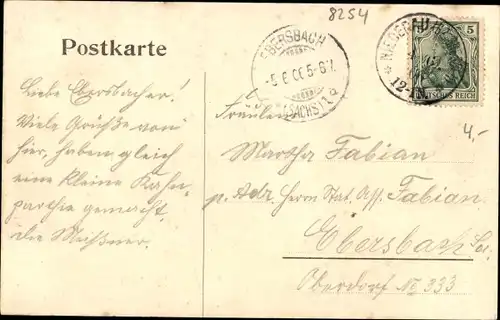 8254
Postkarte
EBERSBACH
(SACHS)
NIEDER
5
5
DEUTSCHES REICH
4,-
Liebe Ebersbacher!
Viele Grüße von
hier, haben gleich
eine kleine Kahn-
parthie gemacht.
die Meißner.
Fräulein
Martha Fabian
p. Adr. Herrn Stat. Ass. Fabian.
Ebersbach
Oberdorf No 333